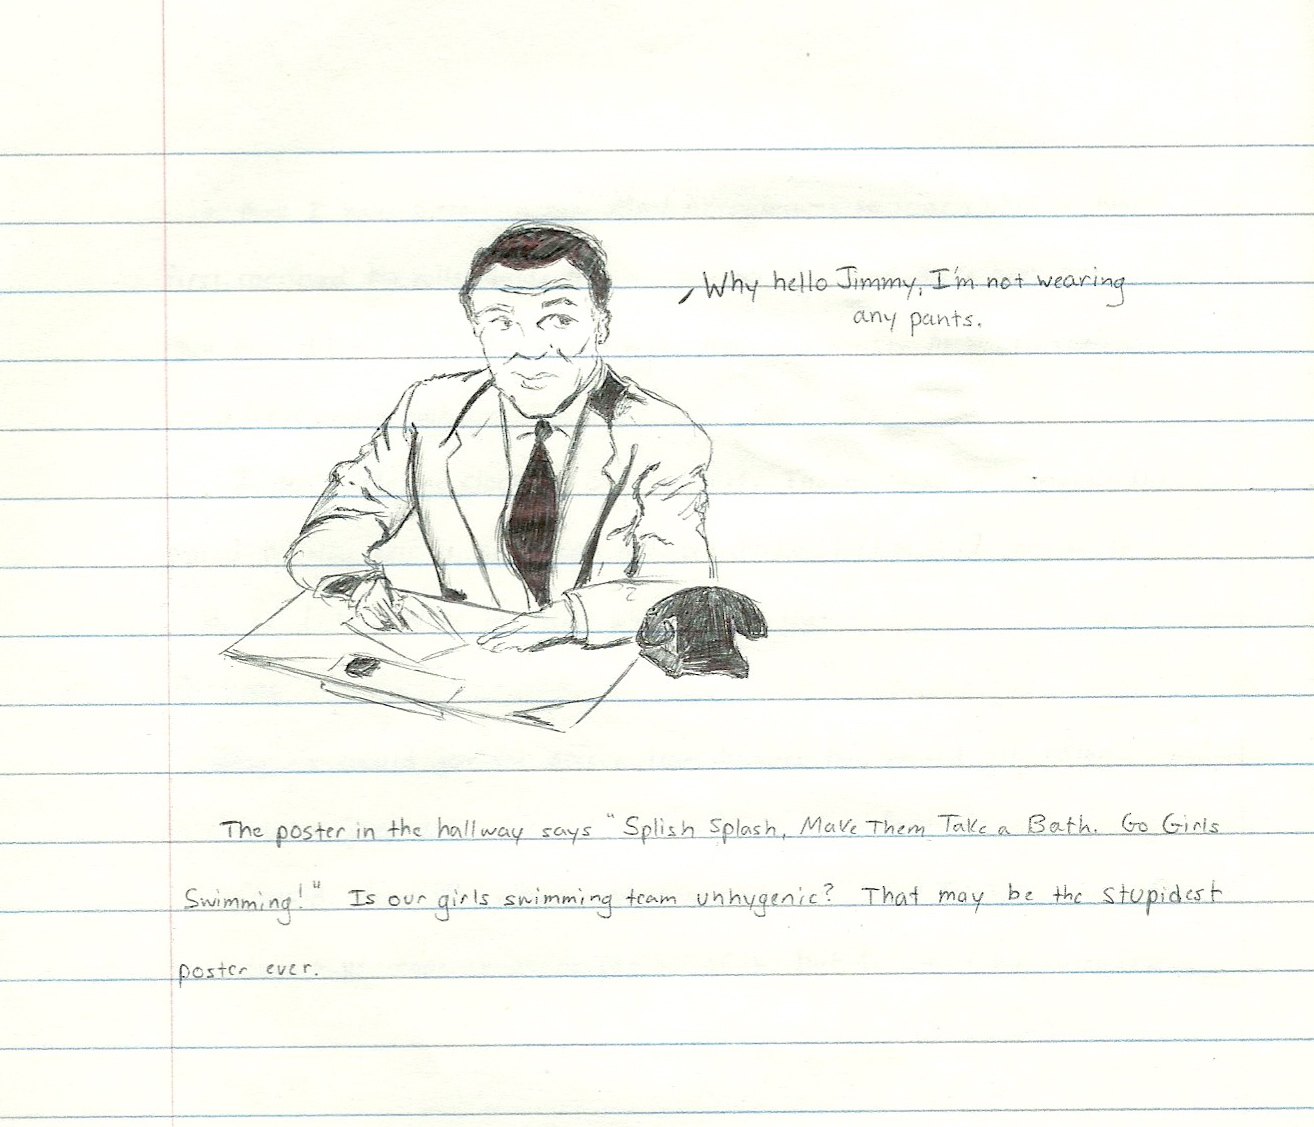 Why hello Jimmy, I'm not wearing
any pants.
The poster in the hallway says "Splish Splash, Make Them Take a Bath. Go Girls
Swimming!" Is our girls swimming team unhygenic? That may be the stupidest
poster ever.